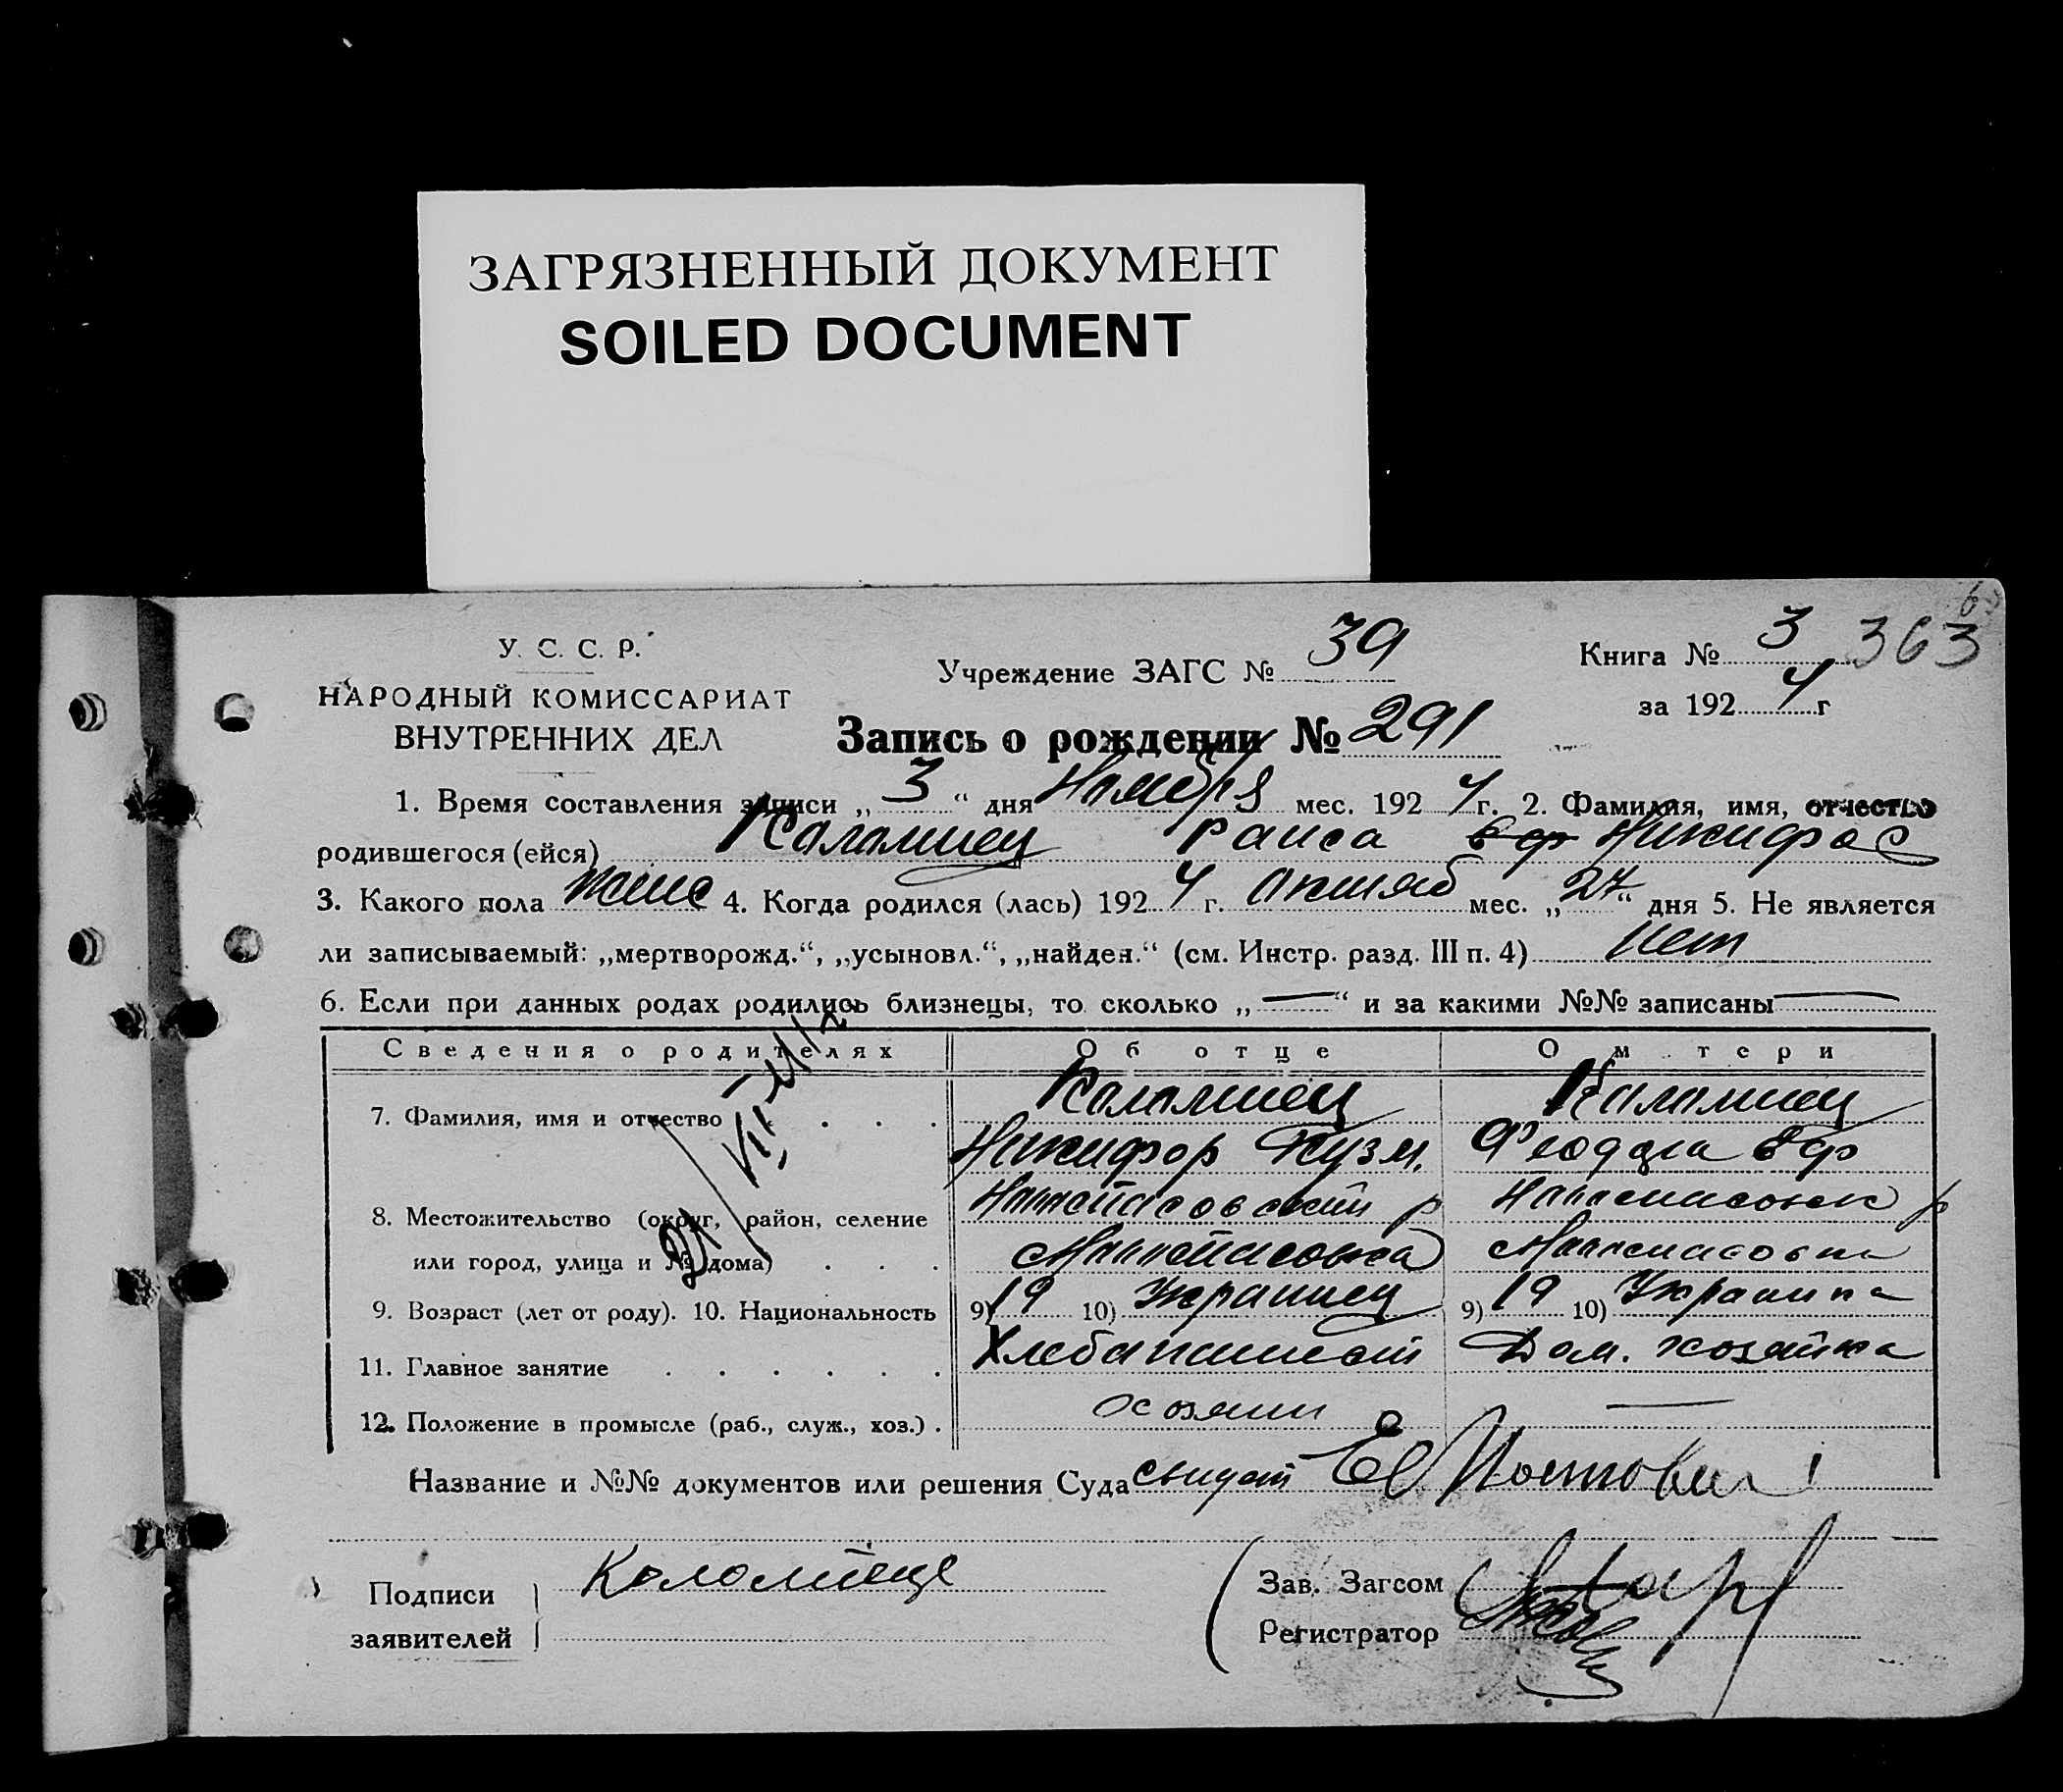 ЗАГРЯЗНЕННЫЙ ДОКУМЕНТ
SOILED DOCUMENT
363
У. С. С. Р.
НАРОДНЫЙ КОМИССАРИАТ
ВНУТРЕННИХ ДЕЛ
Учреждение ЗАГС № 39
Книга № 3
за 192 4 г
Запись о рождении № 291
1. Время составления записи „ 3 “ дня Ноября мес. 192 4 г. 2. Фамилия, имя, отчество
родившегося (ейся) Каламиец Раиса Никифор
3. Какого пола женс 4. Когда родился (лась) 192 4 г. Октяб мес. „ 27 “ дня 5. Не является
ли записываемый: „мертворожд.“, „усыновл.“, „найден.“ (см. Инстр. разд. III п. 4) нет
6. Если при данных родах родились близнецы, то сколько „ — “ и за какими №№ записаны —
Сведения о родителях Об отце О м тери
7. Фамилия, имя и отчество . . . . Каламиец Каламиец
Никифор Кузм.
8. Местожительство (округ, район, селение р р
или город, улица и № дома) . . .
9. Возраст (лет от роду). 10. Национальность 9) 19 10) Украинец 9) 19 10) Украинка
11. Главное занятие . . . . . . Хлебапашест Дом. хозяйка
12. Положение в промысле (раб., служ., хоз.) . хозяин —
Название и №№ документов или решения Суда
Подписи
заявителей
Зав. Загсом
Регистратор